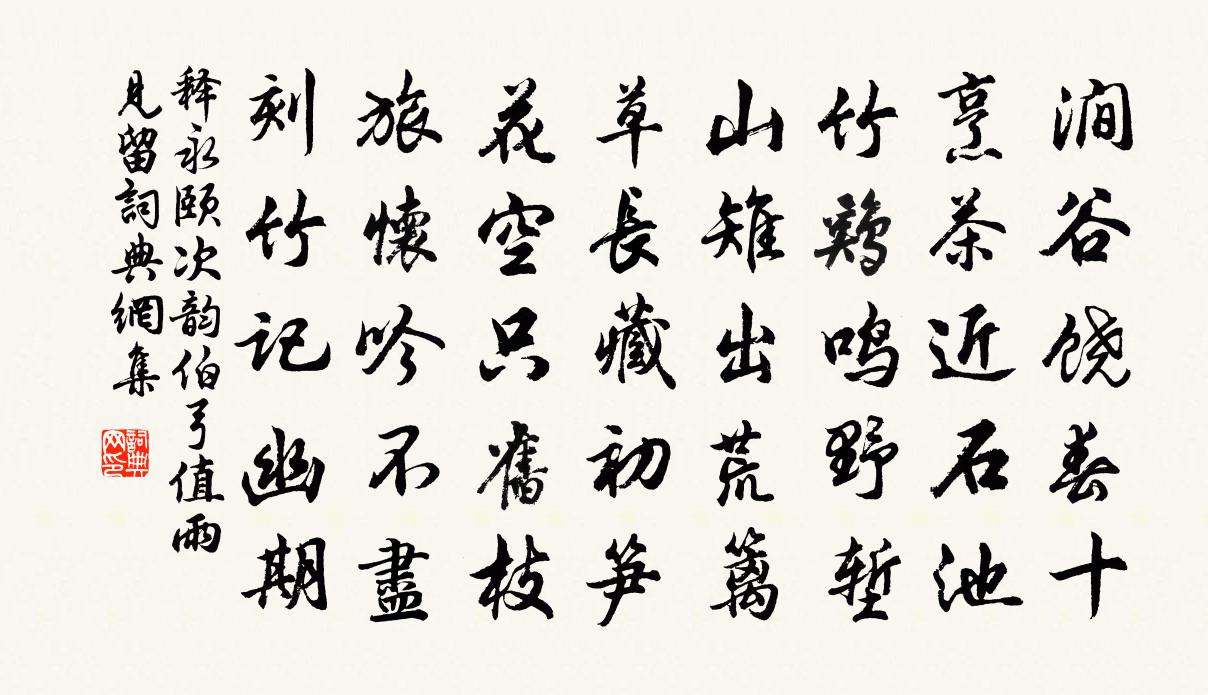 澗谷饶春十
烹茶近石池
竹鷄鳴野堑
山雉出荒籬
草長藏初笋
花空只舊枝
旅懷吟不盡
刻竹记幽期
释永颐次韵伯弓值雨
見留詞典網集
詞典网印